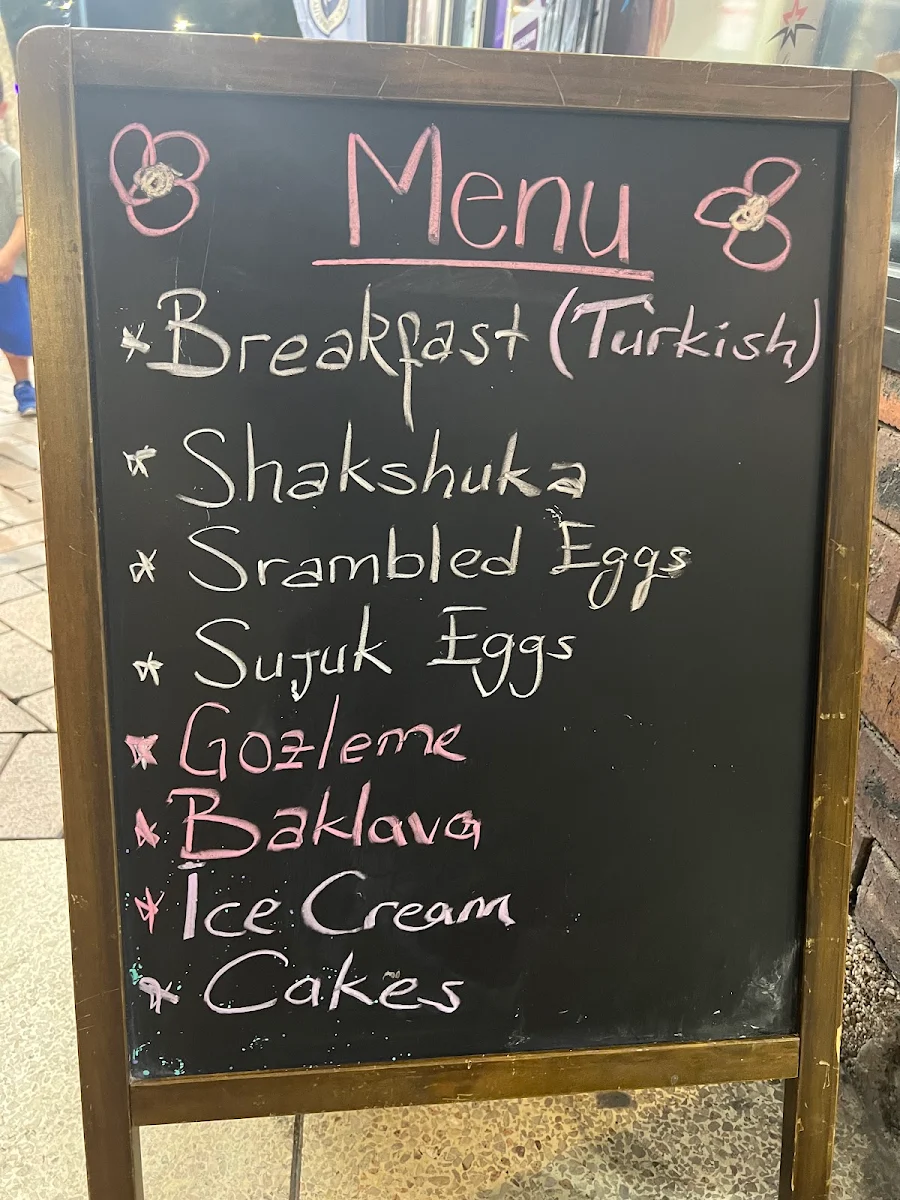 Menu
* Breakfast (Turkish)
* Shakshuka
* Srambled Eggs
* Sujuk Eggs
* Gozleme
* Baklava
* Ice Cream
* Cakes